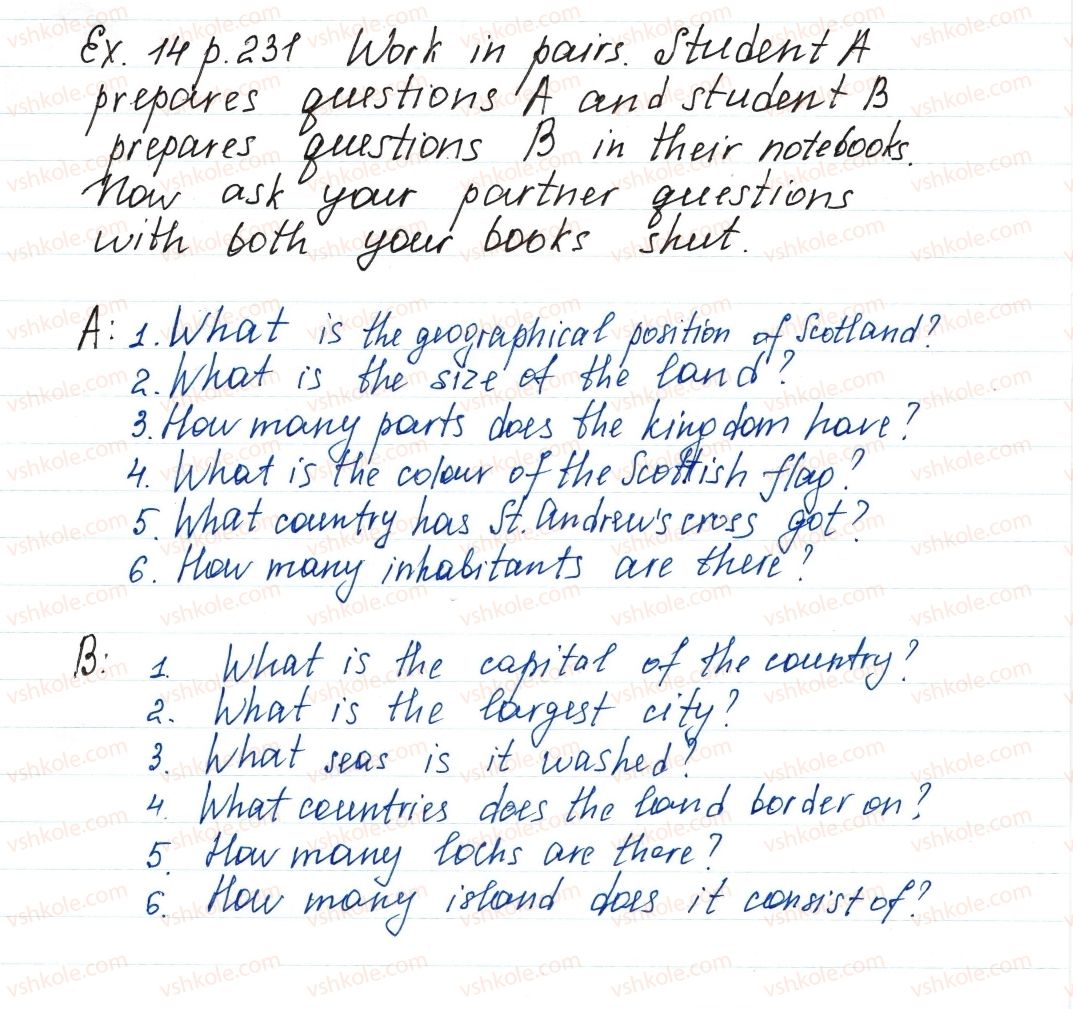 Ex. 14 p. 231 Work in pairs. Student A
prepares questions A and student B
prepares questions B in their notebooks.
Now ask your partner questions
with both your books shut.
A: 1. What is the geographical position of Scotland?
2. What is the size of the land?
3. How many parts does the kingdom have?
4. What is the colour of the Scottish flag?
5. What country has St. Andrew's cross got?
6. How many inhabitants are there?
B: 1. What is the capital of the country?
2. What is the largest city?
3. What seas is it washed?
4. What countries does the land border on?
5. How many lochs are there?
6. How many island does it consist of?
vshkole.com